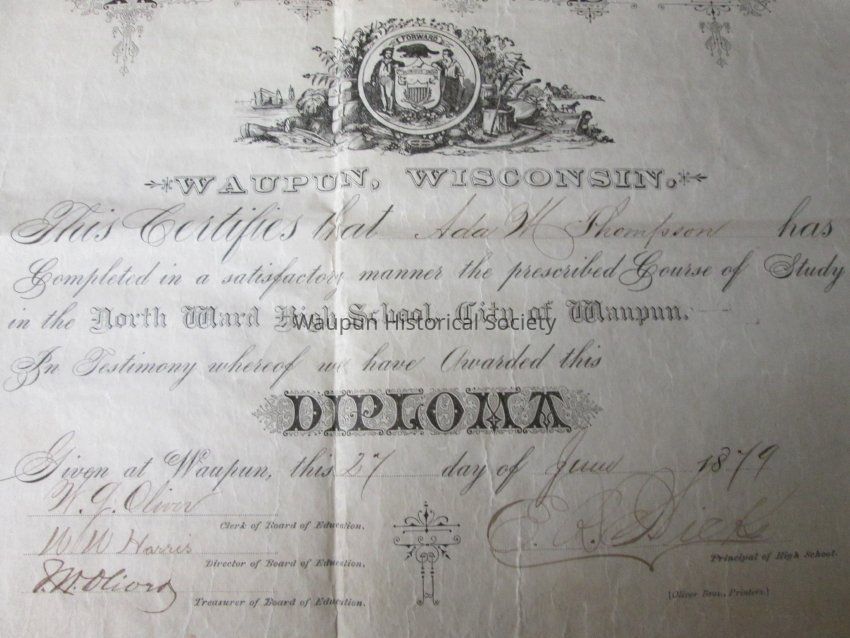 FORWARD
WAUPUN, WISCONSIN.
This Certifies that Ada M Thompson has
Completed in a satisfactory manner the prescribed Course of Study
in the North Ward High School, City of Waupun.
Waupun Historical Society
In Testimony whereof we have Awarded this
DIPLOMA
Given at Waupun, this 27 day of June 1879
W. J. Oliver
Clerk of Board of Education.
W W Harris
Director of Board of Education.
Treasurer of Board of Education.
E. R.
Principal of High School.
[Oliver Bros., Printers.]